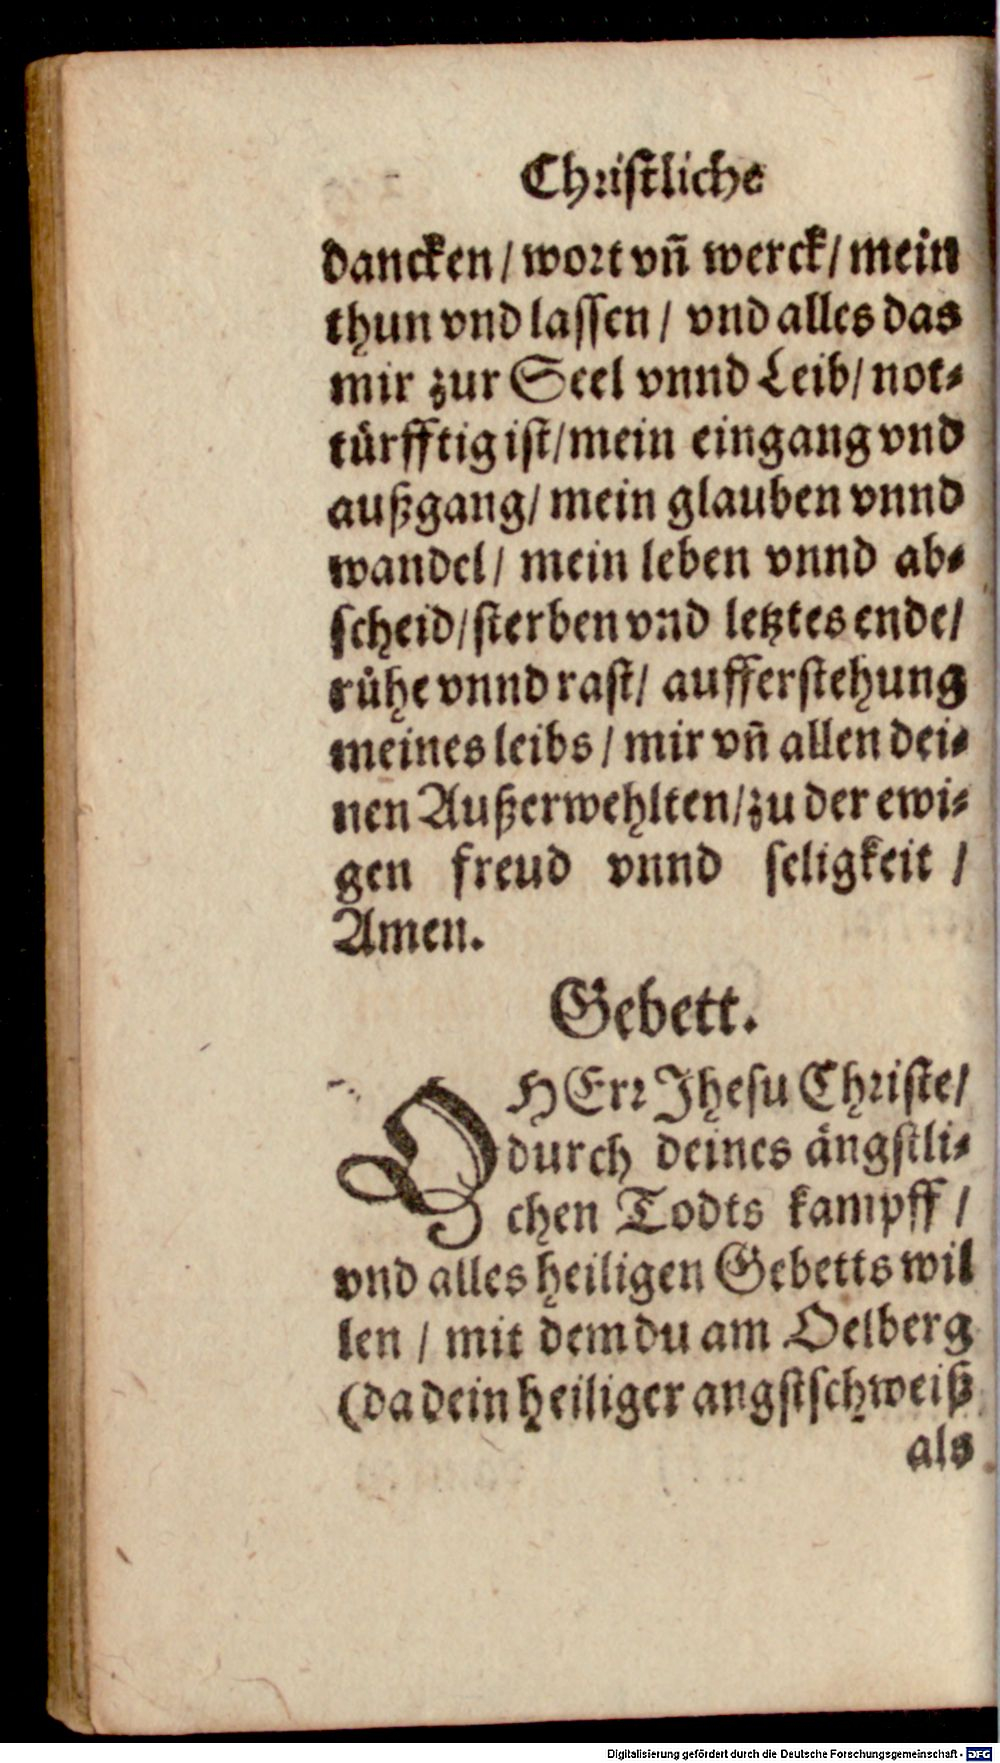 Christliche
dancken / wort vñ werck / mein
thun vnd lassen / vnd alles das
mir zur Seel vnnd Leib / not⸗
türfftig ist / mein eingang vnd
außgang / mein glauben vnnd
wandel / mein leben vnnd ab⸗
scheid / sterben vnd letztes ende /
růhe vnnd rast / aufferstehung
meines leibs / mir vñ allen dei⸗
nen Außerwehlten / zu der ewi⸗
gen freud vnnd seligkeit /
Amen.
Gebett.
O HErr Jhesu Christe /
durch deines ängstli⸗
chen Todts kampff /
vnd alles heiligen Gebetts wil
len / mit dem du am Oelberg
(da dein heiliger angstschweiß
als
Digitalisierung gefördert durch die Deutsche Forschungsgemeinschaft - DFG